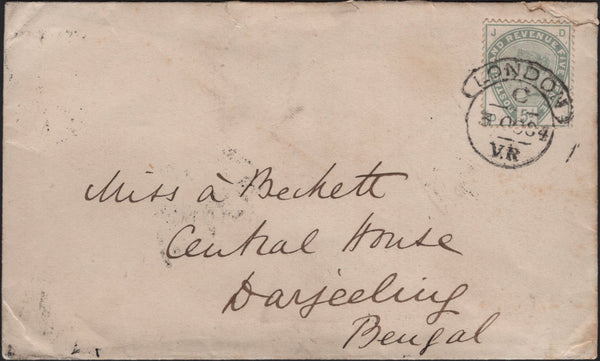 J D
AND REVENUE FIVE
LONDON
C
OC 84
V.R
Miss à Beckett
Central House
Darjeeling
Bengal